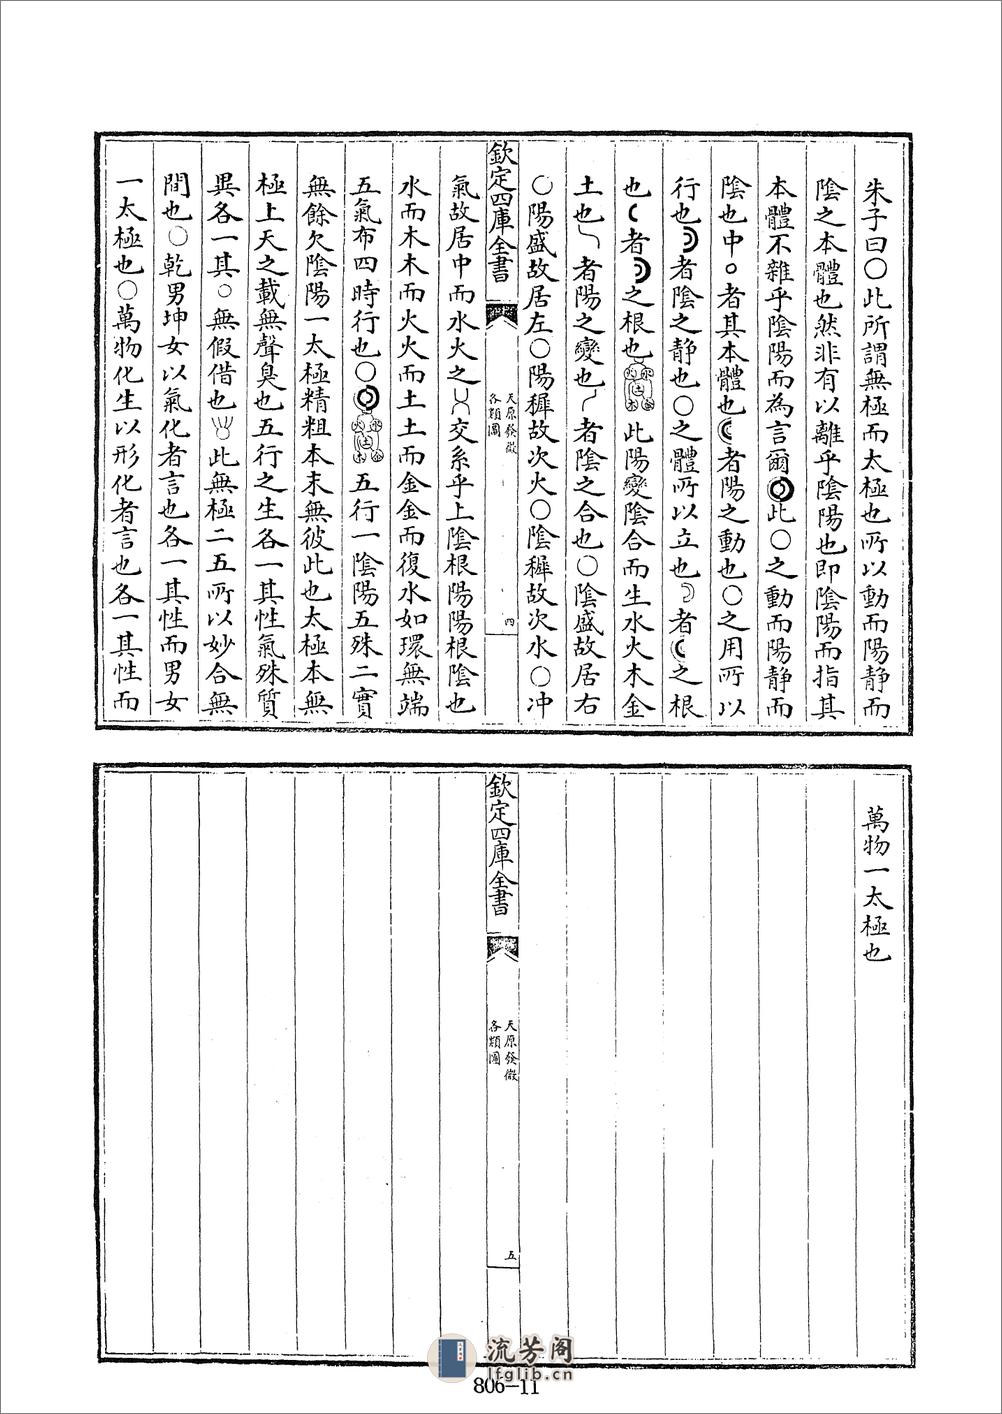 朱子曰〇此所謂無極而太極也所以動而陽静而
陰之本體也然非有以離乎陰陽也即陰陽而指其
本體不雜乎陰陽而為言爾此〇之動而陽静而
陰也中〇者其本體也者陽之動也〇之用所以
行也者陰之静也〇之體所以立也者之根
也者之根也此陽變陰合而生水火木金
土也者陽之變也者陰之合也〇陰盛故居右
〇陽盛故居左〇陽穉故次火〇陰穉故次水〇冲
欽定四庫全書
天原發微
各類圖
四
氣故居中而水火之交系乎上陰根陽陽根陰也
水而木木而火火而土土而金金而復水如環無端
五氣布四時行也〇五行一陰陽五殊二實
無餘欠陰陽一太極精粗本末無彼此也太極本無
極上天之載無聲臭也五行之生各一其性氣殊質
異各一其〇無假借也此無極二五所以妙合無
間也〇乾男坤女以氣化者言也各一其性而男女
一太極也〇萬物化生以形化者言也各一其性而
萬物一太極也
欽定四庫全書
天原發微
各類圖
五
流芳阁
lfglib.cn
806-11